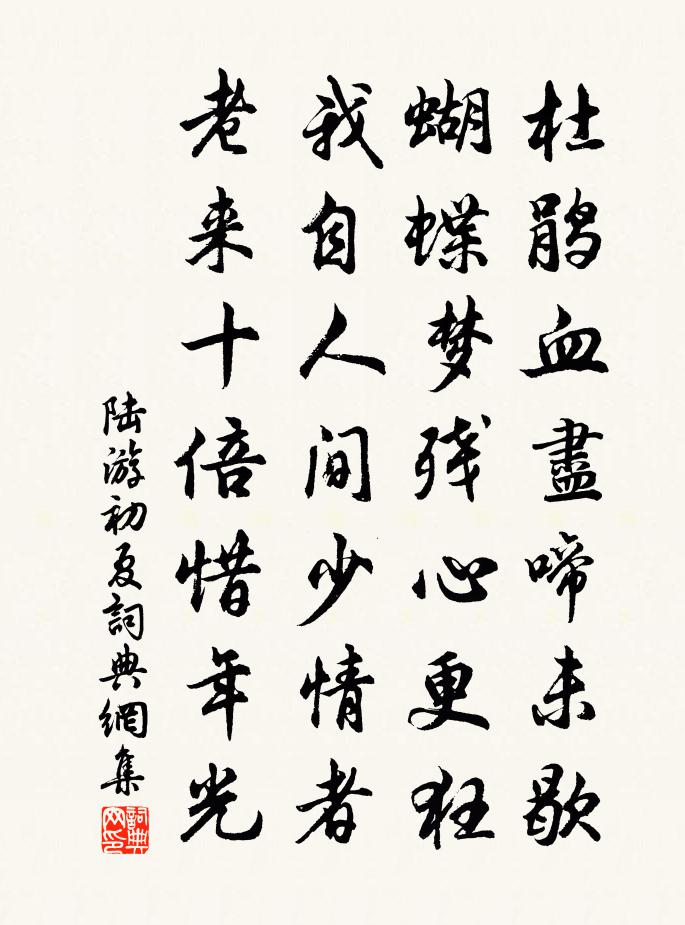 杜鹃血盡啼未歇
蝴蝶梦残心更狂
我自人间少情者
老来十倍惜年光
陆游初夏詞典網集
詞典网印